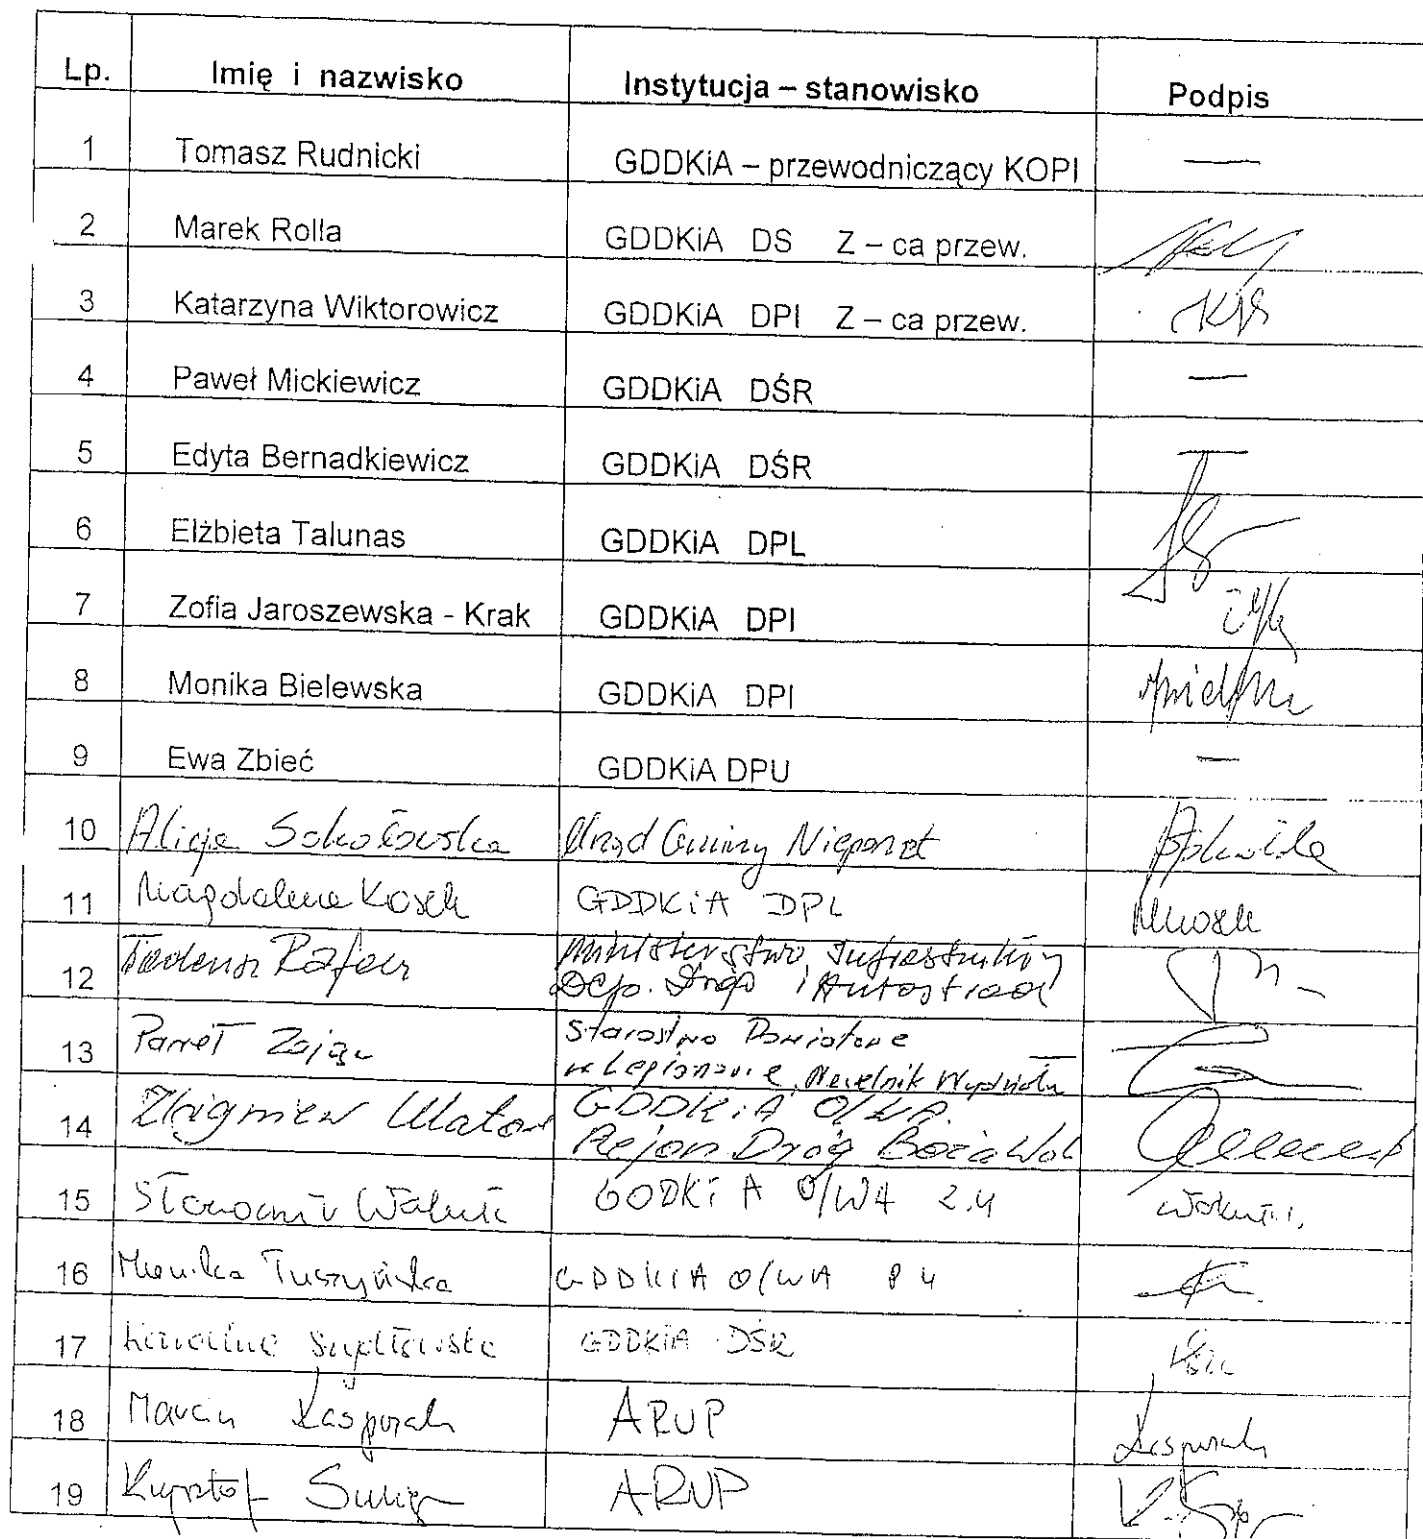 Lp. Imię i nazwisko Instytucja – stanowisko Podpis
1 Tomasz Rudnicki GDDKiA – przewodniczący KOPI —
2 Marek Rolla GDDKiA DS Z – ca przew.
3 Katarzyna Wiktorowicz GDDKiA DPI Z – ca przew.
4 Paweł Mickiewicz GDDKiA DŚR —
5 Edyta Bernadkiewicz GDDKiA DŚR —
6 Elżbieta Talunas GDDKiA DPL
7 Zofia Jaroszewska - Krak GDDKiA DPI
8 Monika Bielewska GDDKiA DPI
9 Ewa Zbieć GDDKiA DPU —
10 Alicja Sokołowska Urząd Gminy Nieporęt
11 Magdalena Kosek GDDKiA DPL
12 Tadeusz Ministerstwo Infrastruktury
Dep. Dróg i Autostrad
13 Paweł Zając Starostwo Powiatowe
w Legionowie, Naczelnik Wydziału
14 Zbigniew GDDKiA O/WA.
Rejon Dróg Boża Wol
15 GDDKiA O/WA
16 Monika Tuszyńska GDDKIA O/WA
17 Karolina GDDKiA DŚR
18 Marcin Kasprzak ARUP Kasprzak
19 Krzysztof ARUP